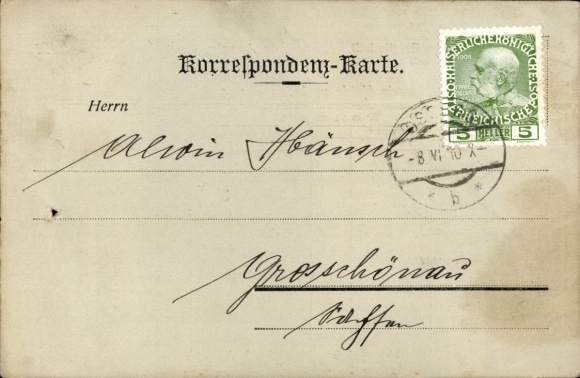 Korrespondenz-Karte.
1908
KAISERLICHE KÖNIGLICHE
ÖSTERREICHISCHE
5 HELLER 5
-8 VI 10 X
* b *
Herrn
Alwin Hänsch
Grosschönau
Sachsen